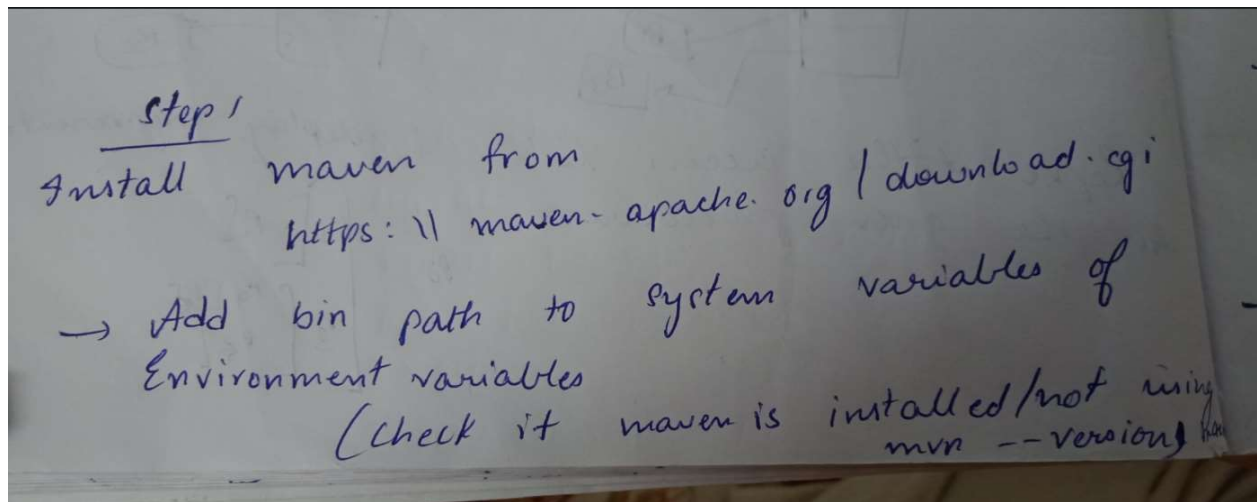 Step 1
Install maven from
https:\\ maven. apache. org / download. cgi
→ Add bin path to system variables of
Environment variables
(Check it maven is installed/not using
mvn --version)